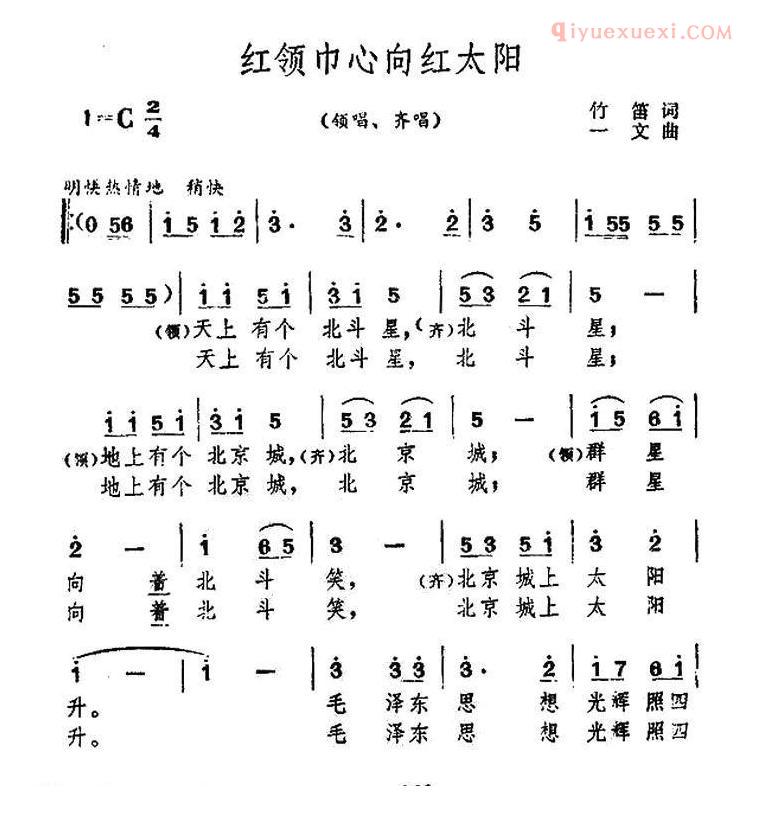 qiyuexuexi.COM
红领巾心向红太阳
1=C 2/4 (领唱、齐唱) 竹笛词
一文曲
明快热情地 稍快
‖:(0 56 | i 5 i 2 | 3· 3 | 2· 2 | 3 5 | i 55 5 5 |
5 5 5 5) | i i 5 i | 3 i 5 | 5 3 2 1 | 5 — |
(领)天上 有个 北斗星,(齐)北 斗 星;
天上 有个 北斗星, 北 斗 星;
i i 5 i | 3 i 5 | 5 3 2 1 | 5 — | i 5 6 i |
(领)地上有个 北京城,(齐)北 京 城; (领)群 星
地上有个 北京城, 北 京 城; 群 星
2 — | i 6 5 | 3 — | 5 3 5 i | 3 2 |
向 着 北 斗 笑, (齐)北京 城上 太 阳
向 着 北 斗 笑, 北京 城上 太 阳
i — | i — | 3 3 3 | 3· 2 | i 7 6 i |
升。 毛 泽东 思 想 光辉 照四
升。 毛 泽东 思 想 光辉 照四